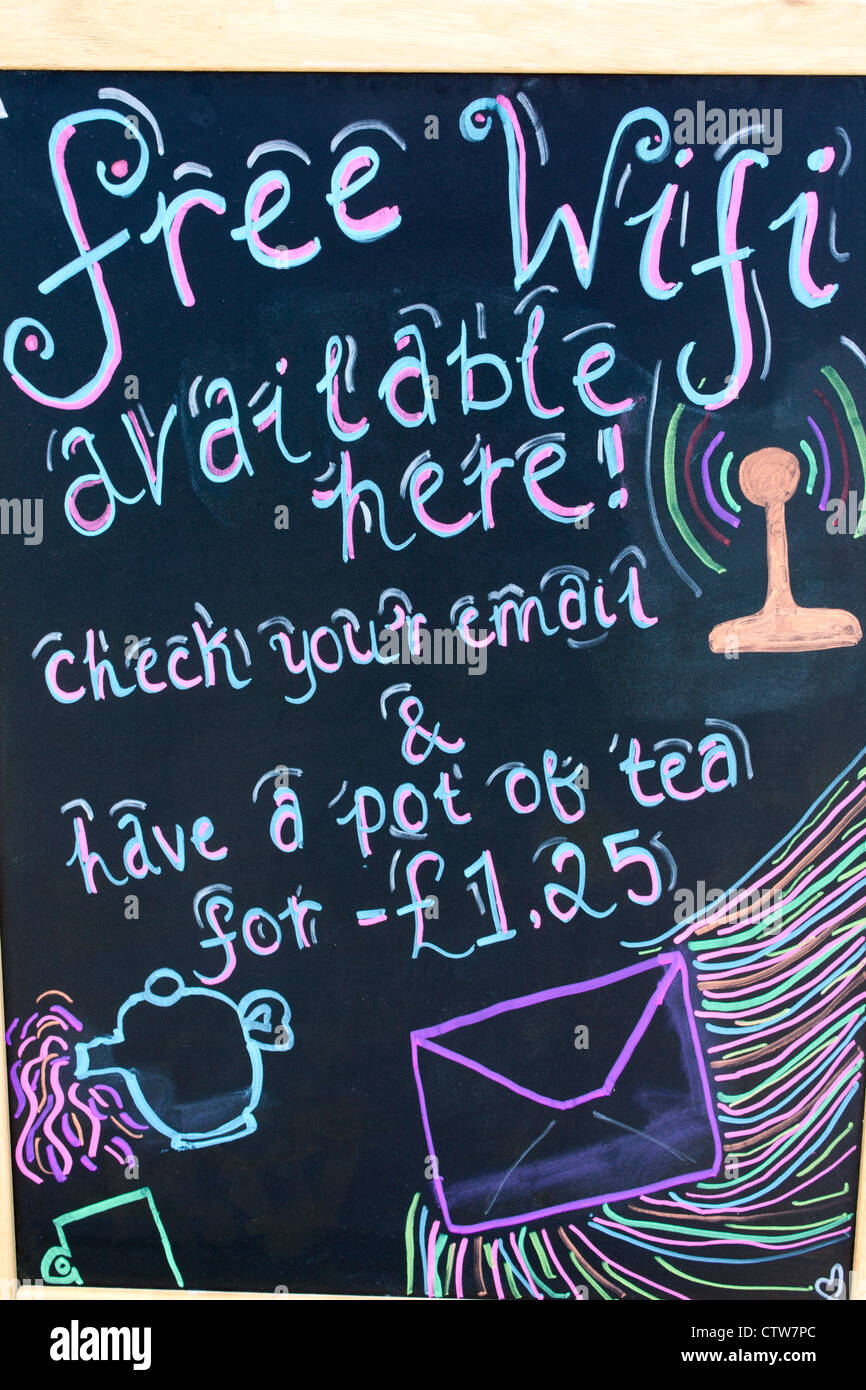 free Wifi
available
here!
check your email
&
have a pot of tea
for -£1.25
alamy
Image ID: CTW7PC
www.alamy.com